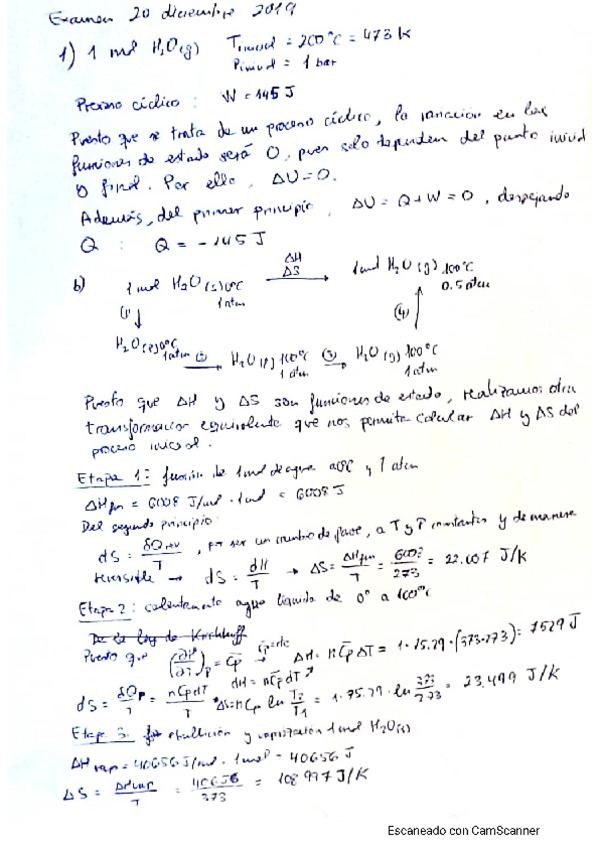 Examen 20 diciembre 2019
1) 1 mol H₂O(g) Tinicial = 200°C = 473 K
Pinicial = 1 bar
Proceso cíclico : W = 145 J
Puesto que se trata de un proceso cíclico, la variación en las
funciones de estado será 0, pues solo dependen del punto inicial
y final. Por ello, ΔU = 0.
Además, del primer principio, ΔU = Q + W = 0, despejando
Q : Q = -145 J
b) 1 mol H₂O (s) 0°C 1 atm ΔH ΔS → 1 mol H₂O (g) 100°C 0.5 atm
(1) ↓ (4) ↑
H₂O (l) 0°C 1 atm (2) → H₂O (l) 100°C 1 atm (3) → H₂O (g) 100°C 1 atm
Puesto que ΔH y ΔS son funciones de estado, realizamos otra
transformación equivalente que nos permita calcular ΔH y ΔS del
proceso inicial.
Etapa 1: fusión de 1 mol de agua a 0°C y 1 atm
ΔHfus = 6008 J/mol · 1 mol = 6008 J
Del segundo principio:
dS = δQrev/T, por ser un cambio de fase, a T y P constantes y de manera
reversible → dS = dH/T → ΔS = ΔHfus/T = 6008/273 = 22.007 J/K
Etapa 2: calentamiento agua líquida de 0° a 100°C
De la ley de Kirchhoff
Puesto que (∂H/∂T)p = Cp → Cp=cte ΔH = nCpΔT = 1·75.29·(373-273) = 7529 J
dH = nCpdT
dS = δQp/T = nCpdT/T ΔS = nCp ln T₂/T₁ = 1·75.29·ln 373/273 = 23.499 J/K
Etapa 3: ebullición y vaporización 1 mol H₂O
ΔHvap = 40656 J/mol · 1 mol = 40656 J
ΔS = ΔHvap/T = 40656/373 = 108.997 J/K
Escaneado con CamScanner